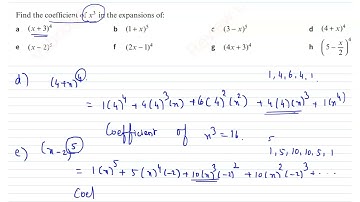 Find the coefficient of x³ in the expansions of:
a (x + 3)⁴ b (1 + x)⁵ c (3 − x)⁵ d (4 + x)⁴
e (x − 2)⁵ f (2x − 1)⁴ g (4x + 3)⁴ h (5 − x/2)⁴
d) (4+x)⁴ 1, 4, 6, 4, 1
= 1(4)⁴ + 4(4)³(x) + 6(4)²(x²) + 4(4)(x)³ + 1(x⁴)
Coefficient of x³ = 16.
e) (x-2)⁵ 5
1, 5, 10, 10, 5, 1
= 1(x)⁵ + 5(x)⁴(-2) + 10(x)³(-2)² + 10(x)²(-2)³ + ...
Coef